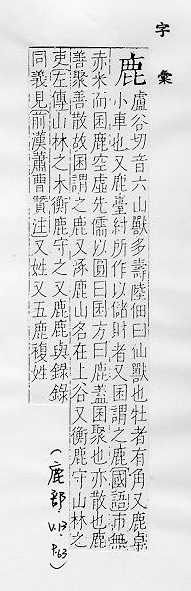 字彙
鹿
盧谷切音六山獸多壽陸佃曰仙獸也牡者有角又鹿
小車也又鹿臺紂所作以儲財者又囷謂之鹿國語市無
赤米而囷鹿空虛先儒以圓曰囷方曰鹿蓋囷聚也亦散也鹿
善聚善散故囷謂之鹿又涿鹿山名在上谷又衡鹿守山林之
吏左傳山林之木衡鹿守之又鹿鹿與錄錄
同義見前漢蕭曹贊註又姓又五鹿複姓
(鹿部 V.13. P.63)